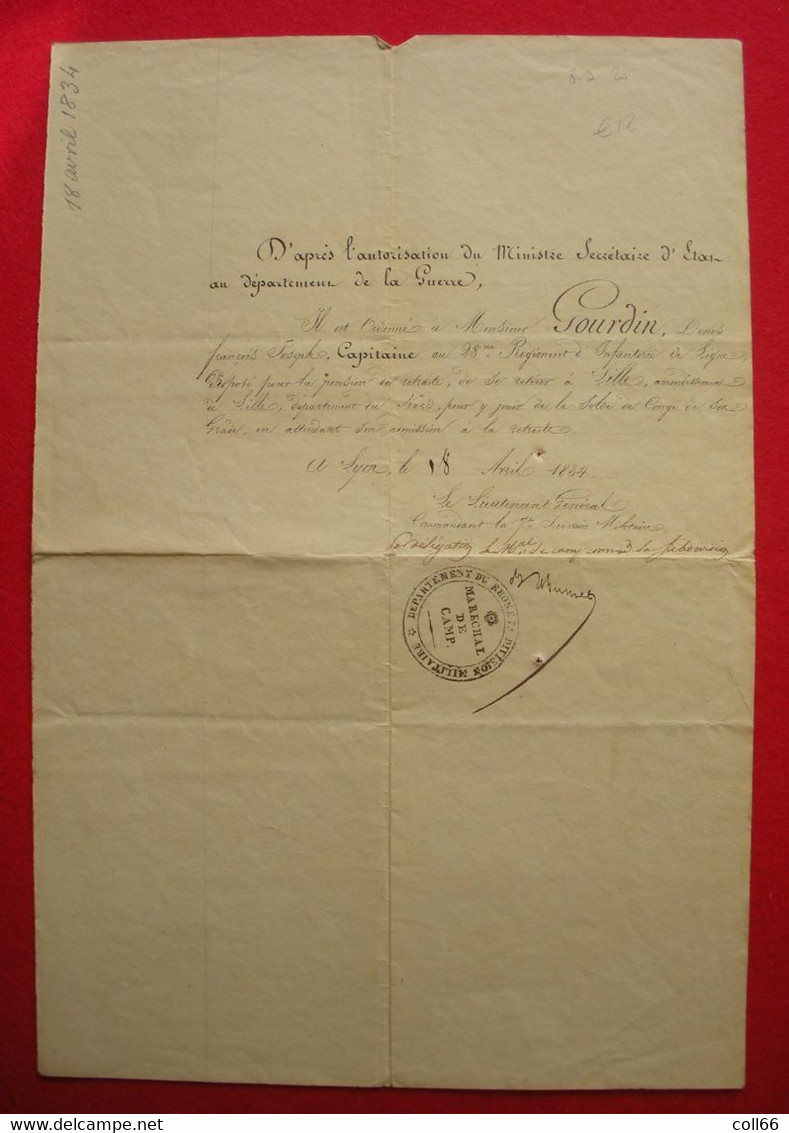 18 avril 1834
€12
D'après l'autorisation du Ministre Secrétaire d'Etat
au département de la Guerre,
Il est Ordonné à Monsieur Gourdin,
françois Joseph, Capitaine au 28me Régiment d'Infanterie de Ligne,
Proposé pour la pension de retraite, de se retirer à Lille, arrondissement
de Lille, département du Nord, pour y jouir de la Solde de Congé de Son
Grade, en attendant Son admission à la retraite.
A Lyon, le 18 Avril 1834.
Le Lieutenant Général
Commandant la 7e Division Militaire,
Par délégation le Mal de camp command la subdivision
DÉPARTEMENT DU RHONE 7E DIVISION MILITAIRE
MARÉCHAL
DE
CAMP.
Delcampe.net
coll66